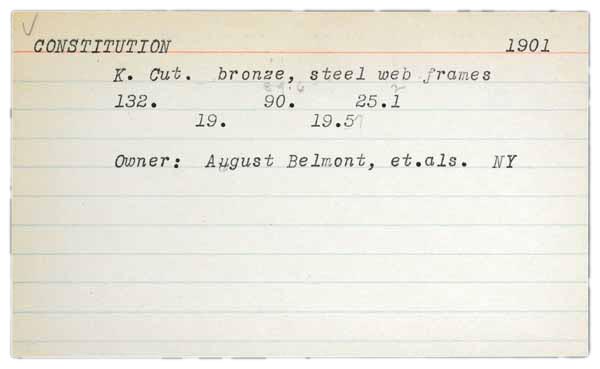 CONSTITUTION 1901
K. Cut. bronze, steel web frames
132. 90. 25.1
19. 19.5
Owner: August Belmont, et.als. NY